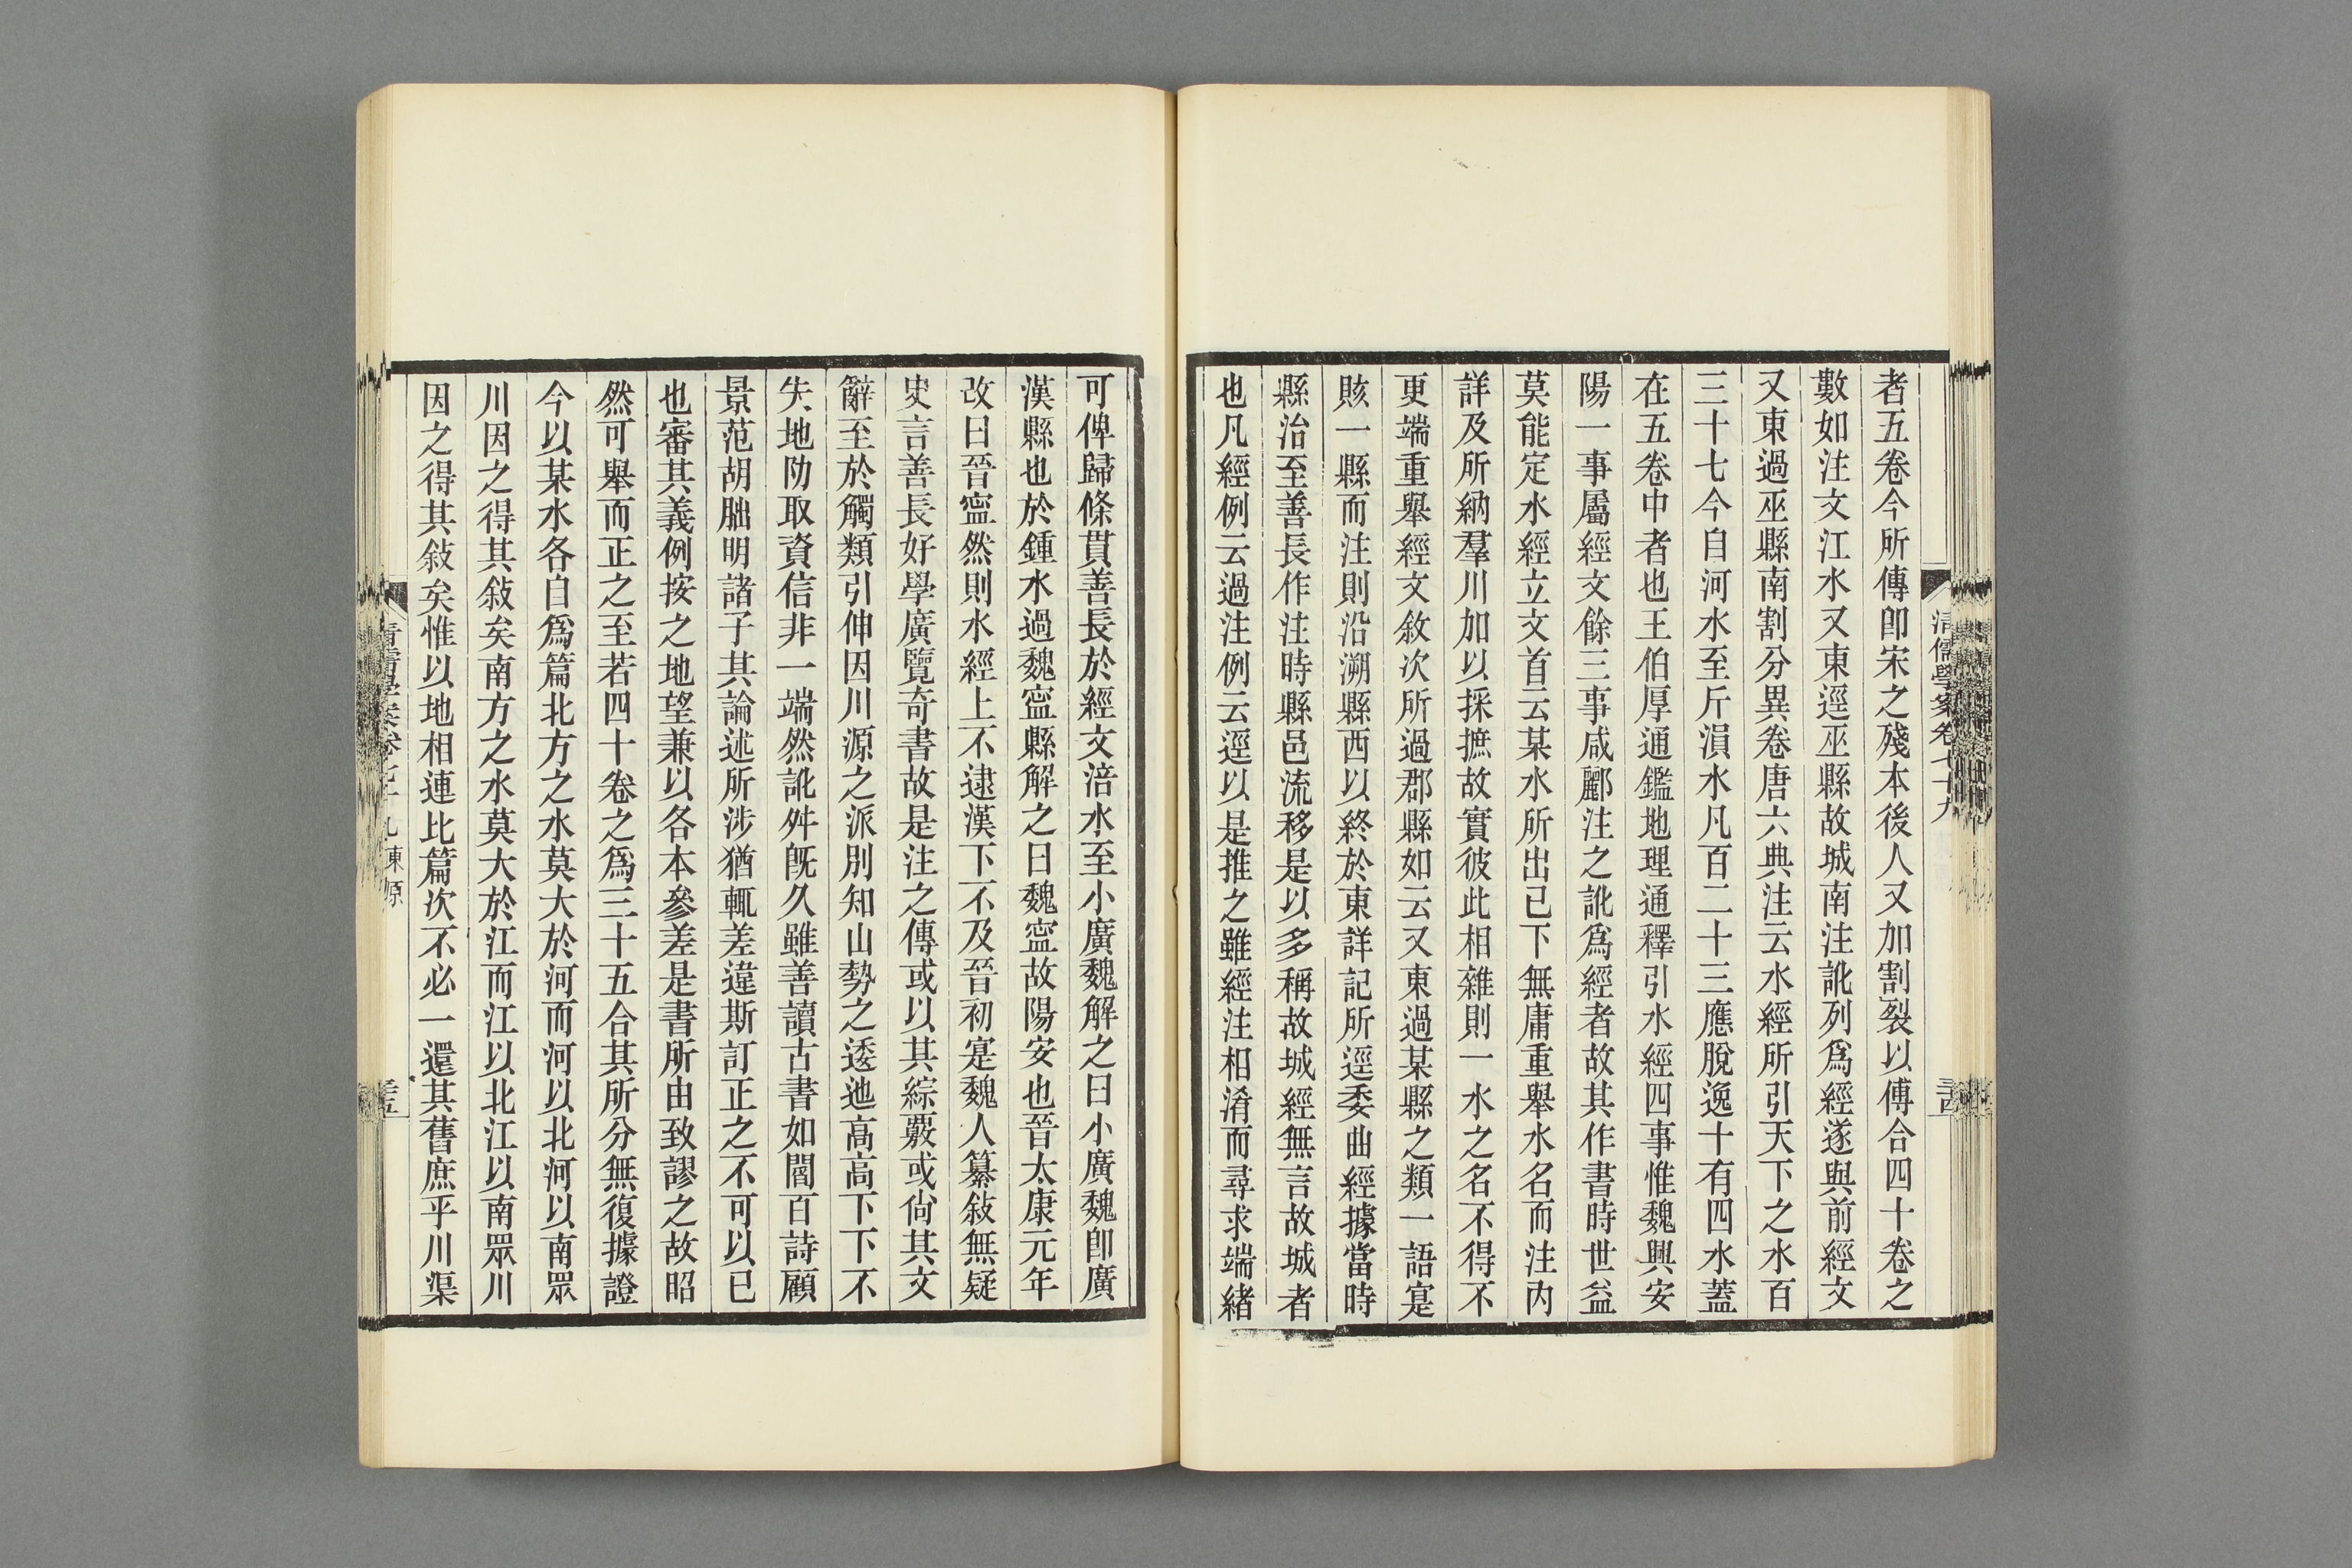 者五卷今所傳卽宋之殘本後人又加割裂以傅合四十卷之
數如注文江水又東逕巫縣故城南注訛列爲經遂與前經文
又東過巫縣南割分異卷唐六典注云水經所引天下之水百
三十七今自河水至斤湏水凡百二十三應脫逸十有四水蓋
在五卷中者也王伯厚通鑑地理通釋引水經四事惟魏興安
陽一事屬經文餘三事咸酈注之訛爲經者故其作書時世益
莫能定水經立文首云某水所出已下無庸重舉水名而注內
詳及所納羣川加以採摭故實彼此相雜則一水之名不得不
更端重舉經文敘次所過郡縣如云又東過某縣之類一語寔
賅一縣而注則沿溯縣西以終於東詳記所逕委曲經據當時
縣治至善長作注時縣邑流移是以多稱故城經無言故城者
也凡經例云過注例云逕以是推之雖經注相淆而尋求端緒
清儒學案卷七十九
三四
可俾歸條貫善長於經文涪水至小廣魏解之曰小廣魏卽廣
漢縣也於鍾水過魏寍縣解之曰魏寍故陽安也晉太康元年
改曰晉寍然則水經上不逮漢下不及晉初寔魏人纂敍無疑
史言善長好學廣覽奇書故是注之傳或以其綜覈或尙其文
辭至於觸類引伸因川源之派別知山勢之逶迤高高下下不
失地阞取資信非一端然訛舛旣久雖善讀古書如閻百詩顧
景范胡朏明諸子其論述所涉猶輒差違斯訂正之不可以已
也審其義例按之地望兼以各本參差是書所由致謬之故昭
然可舉而正之至若四十卷之爲三十五合其所分無復據證
今以某水各自爲篇北方之水莫大於河而河以北河以南眾
川因之得其敍矣南方之水莫大於江而江以北江以南眾川
因之得其敍矣惟以地相連比篇次不必一還其舊庶乎川渠
清儒學案卷七十九 東原
三五